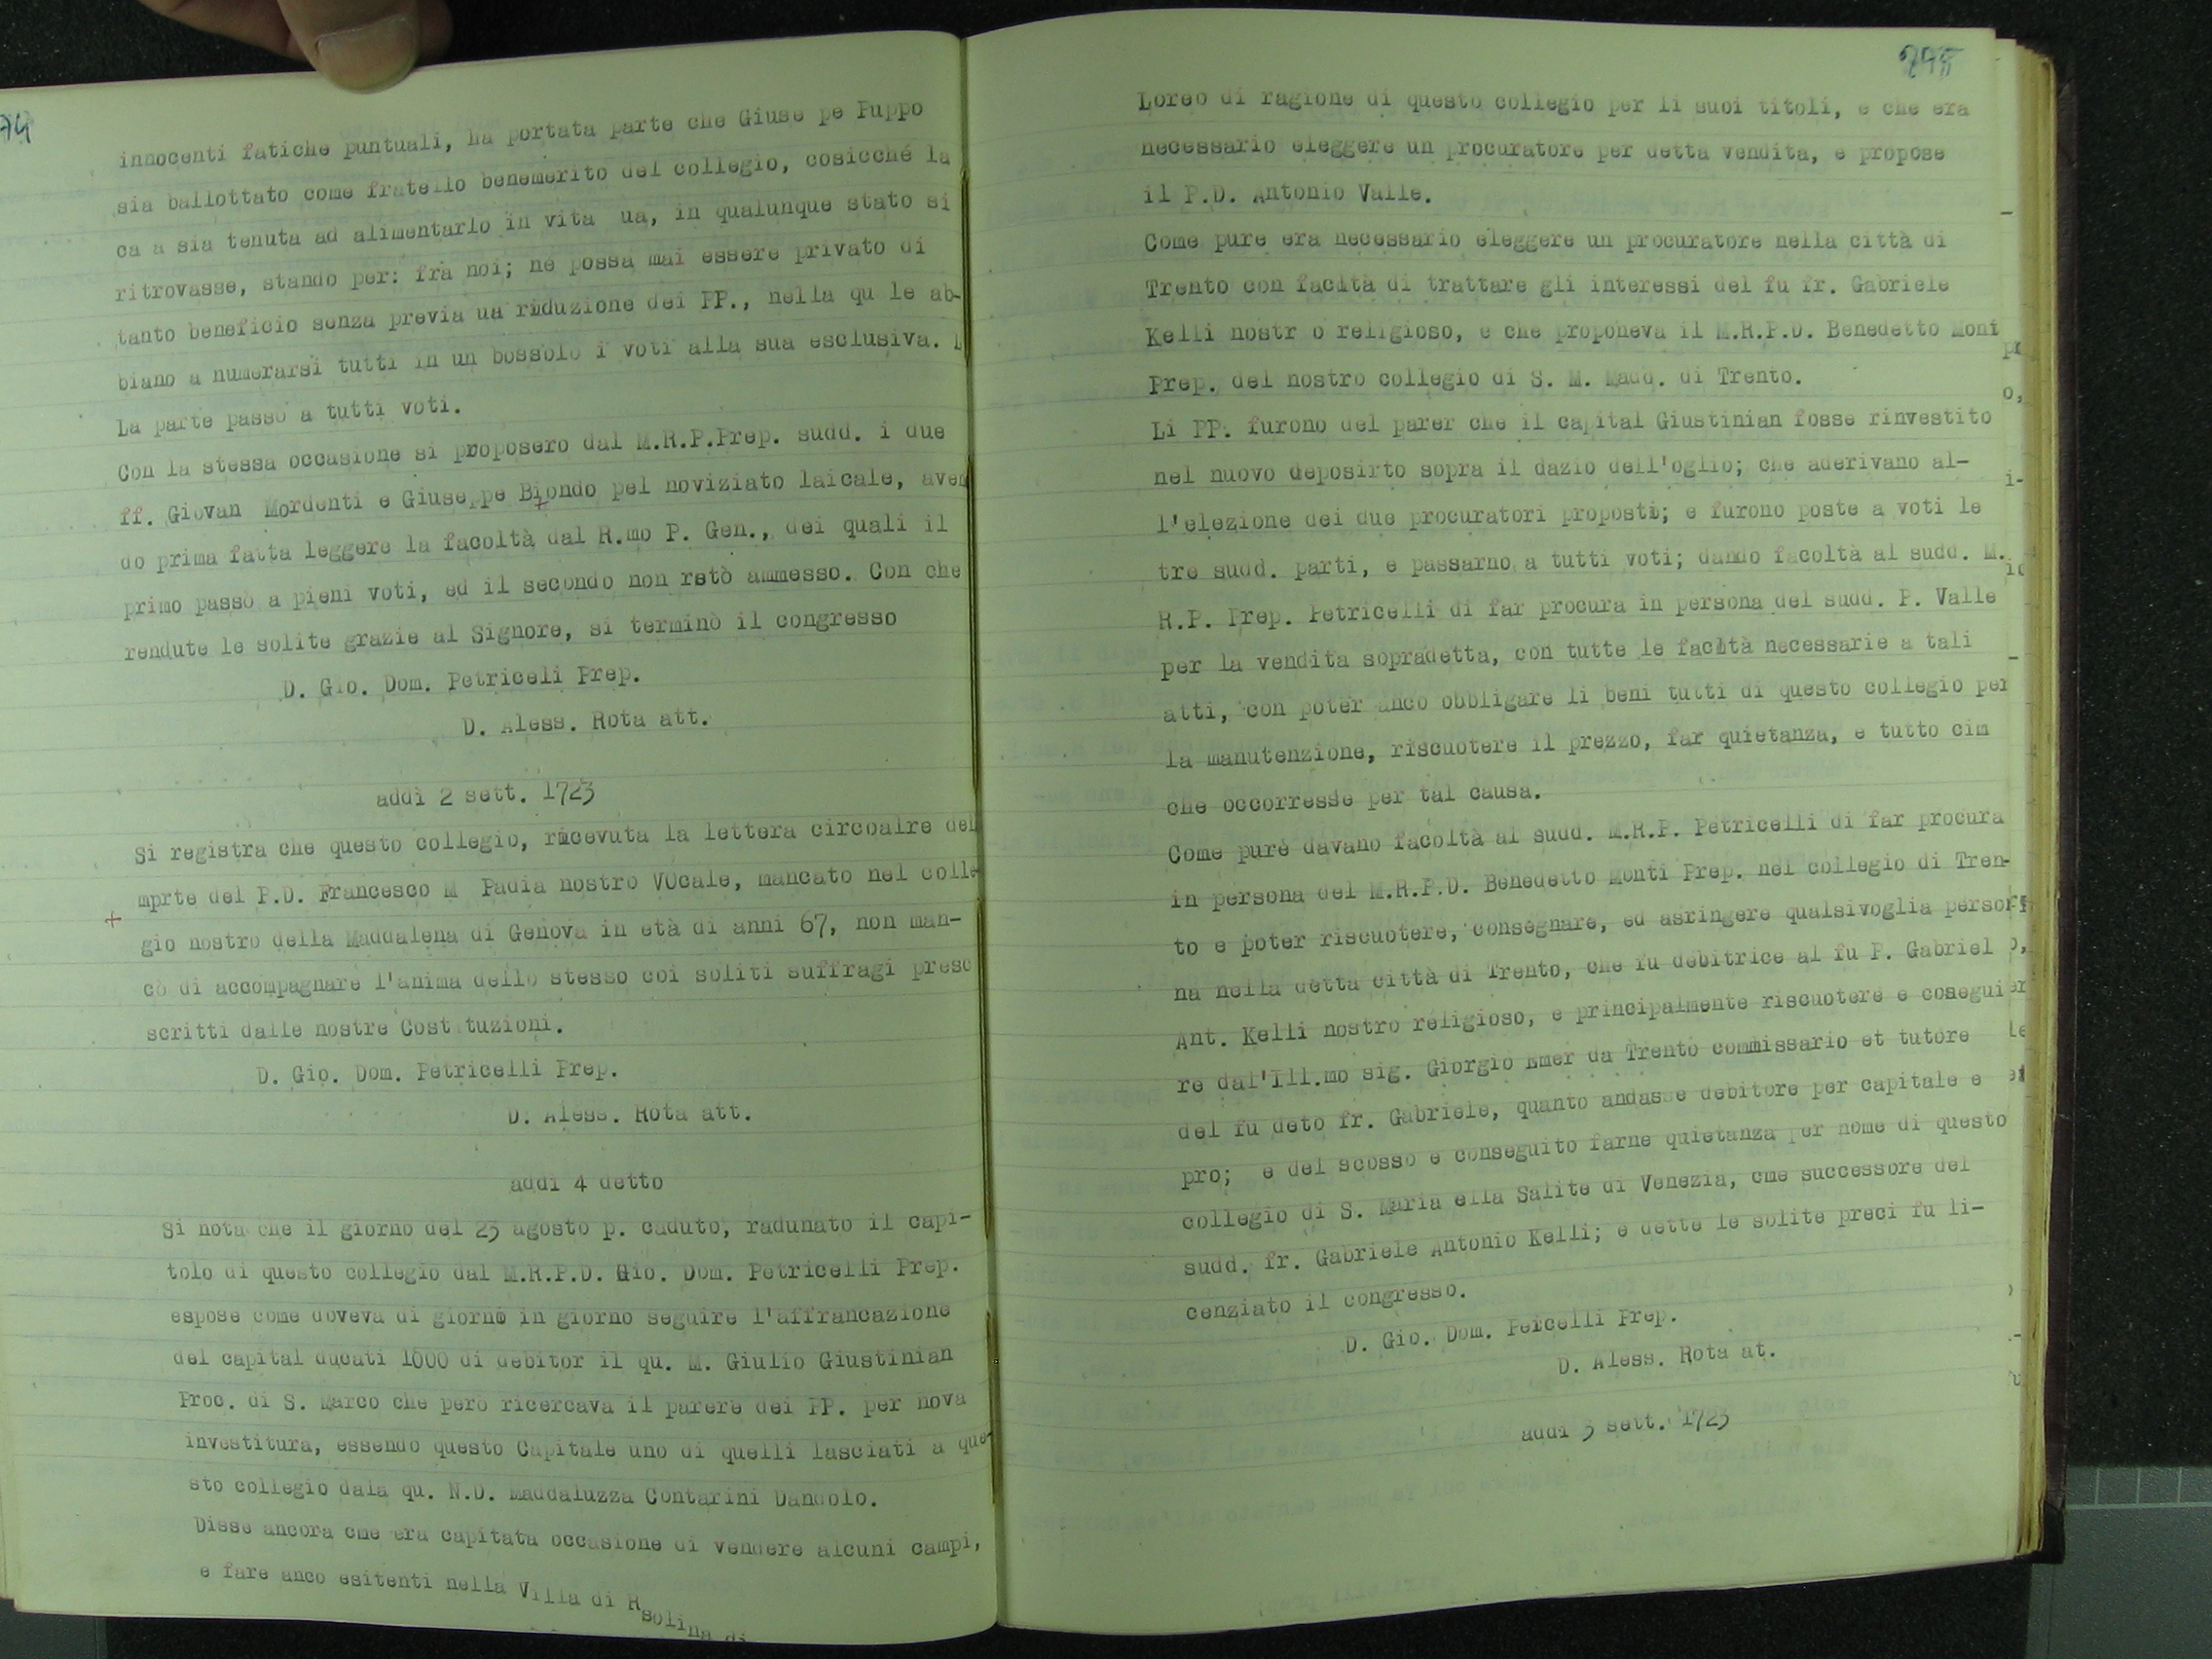 74
innocenti fatiche puntuali, ha portata parte che Giuse pe Puppo
sia ballottato come fratello benemerito del collegio, cosicché la
ca a sia tenuta ad alimentarlo in vita ua, in qualunque stato si
ritrovasse, stando per: fra noi; né possa mai essere privato di
tanto beneficio senza previa ua riduzione dei PP., nella qu le ab-
biano a numerarsi tutti in un bossolo i voti alla sua esclusiva.
La parte passò a tutti voti.
Con la stessa occasione si proposero dal M.R.P.Prep. sudd. i due
ff. Giovan Mordenti e Giuseppe Biondo pel noviziato laicale, aven
do prima fatta leggere la facoltà dal R.mo P. Gen., dei quali il
primo passò a pieni voti, ed il secondo non retò ammesso. Con che
rendute le solite grazie al Signore, si terminò il congresso
D. Gio. Dom. Petriceli Prep.
D. Aless. Rota att.
addì 2 sett. 1723
Si registra che questo collegio, ricevuta la lettera circoalre del
mprte del P.D. Francesco M Padia nostro VOcale, mancato nel colle
+ gio nostro della Maddalena di Genova in età di anni 67, non man-
cò di accompagnare l'anima dello stesso coi soliti suffragi presc
scritti dalle nostre Cost tuzioni.
D. Gio. Dom. Petricelli Prep.
D. Aless. Rota att.
addì 4 detto
Si nota che il giorno del 23 agosto p. caduto, radunato il capi-
tolo di questo collegio dal M.R.P.D. Gio. Dom. Petricelli Prep.
espose come doveva di giorno in giorno seguire l'affrancazione
del capital ducati 1000 di debitor il qu. M. Giulio Giustinian
Proc. di S. Marco che però ricercava il parere dei PP. per nova
investitura, essendo questo Capitale uno di quelli lasciati a que-
sto collegio dala qu. N.D. Maddaluzza Contarini Dandolo.
Disse ancora cme era capitata occasione di vendere alcuni campi,
e fare anco esitenti nella Villa di Rsolina di
Loreo di ragione di questo collegio per li suoi titoli, e che era
necessario eleggere un procuratore per detta vendita, e propose
il P.D. Antonio Valle.
Come pure era necessario eleggere un procuratore nella città di
Trento con facltà di trattare gli interessi del fu fr. Gabriele
Kelli nostr o religioso, e che proponeva il M.R.P.D. Benedetto Mont
Prep. del nostro collegio di S. M. Madd. di Trento.
Li PP. furono del parer che il capital Giustinian fosse rinvestito
nel nuovo deposirto sopra il dazio dell'oglio; che aderivano al-
l'elezione dei due procuratori proposti; e furono poste a voti le
tre sudd. parti, e passarno a tutti voti; dando facoltà al sudd. M.
R.P. Prep. Petricelli di far procura in persona del sudd. P. Valle
per la vendita sopradetta, con tutte le facltà necessarie a tali
atti, con poter anco obbligare li beni tutti di questo collegio per
la manutenzione, riscuotere il prezzo, far quietanza, e tutto cim
che occorresse per tal causa.
Come pure davano facoltà al sudd. M.R.P. Petricelli di far procura
in persona del M.R.P.D. Benedetto Monti Prep. nel collegio di Tren-
to e poter riscuotere, consegnare, ed asringere qualsivoglia perso
na nella detta città di Trento, che fu debitrice al fu P. Gabriel
Ant. Kelli nostro religioso, e principalmente riscuotere e conegui
re dal'Ill.mo sig. Giorgio Emer da Trento commissario et tutore
del fu deto fr. Gabriele, quanto andasse debitore per capitale e
pro; e del scosso e conseguito farne quietanza per nome di questo
collegio di S. Maria ella Salite di Venezia, cme successore del
sudd. fr. Gabriele Antonio Kelli; e dette le solite preci fu li-
cenziato il congresso.
D. Gio. Dom. Peicelli Prep.
D. Aless. Rota at.
addì 3 sett. 1723